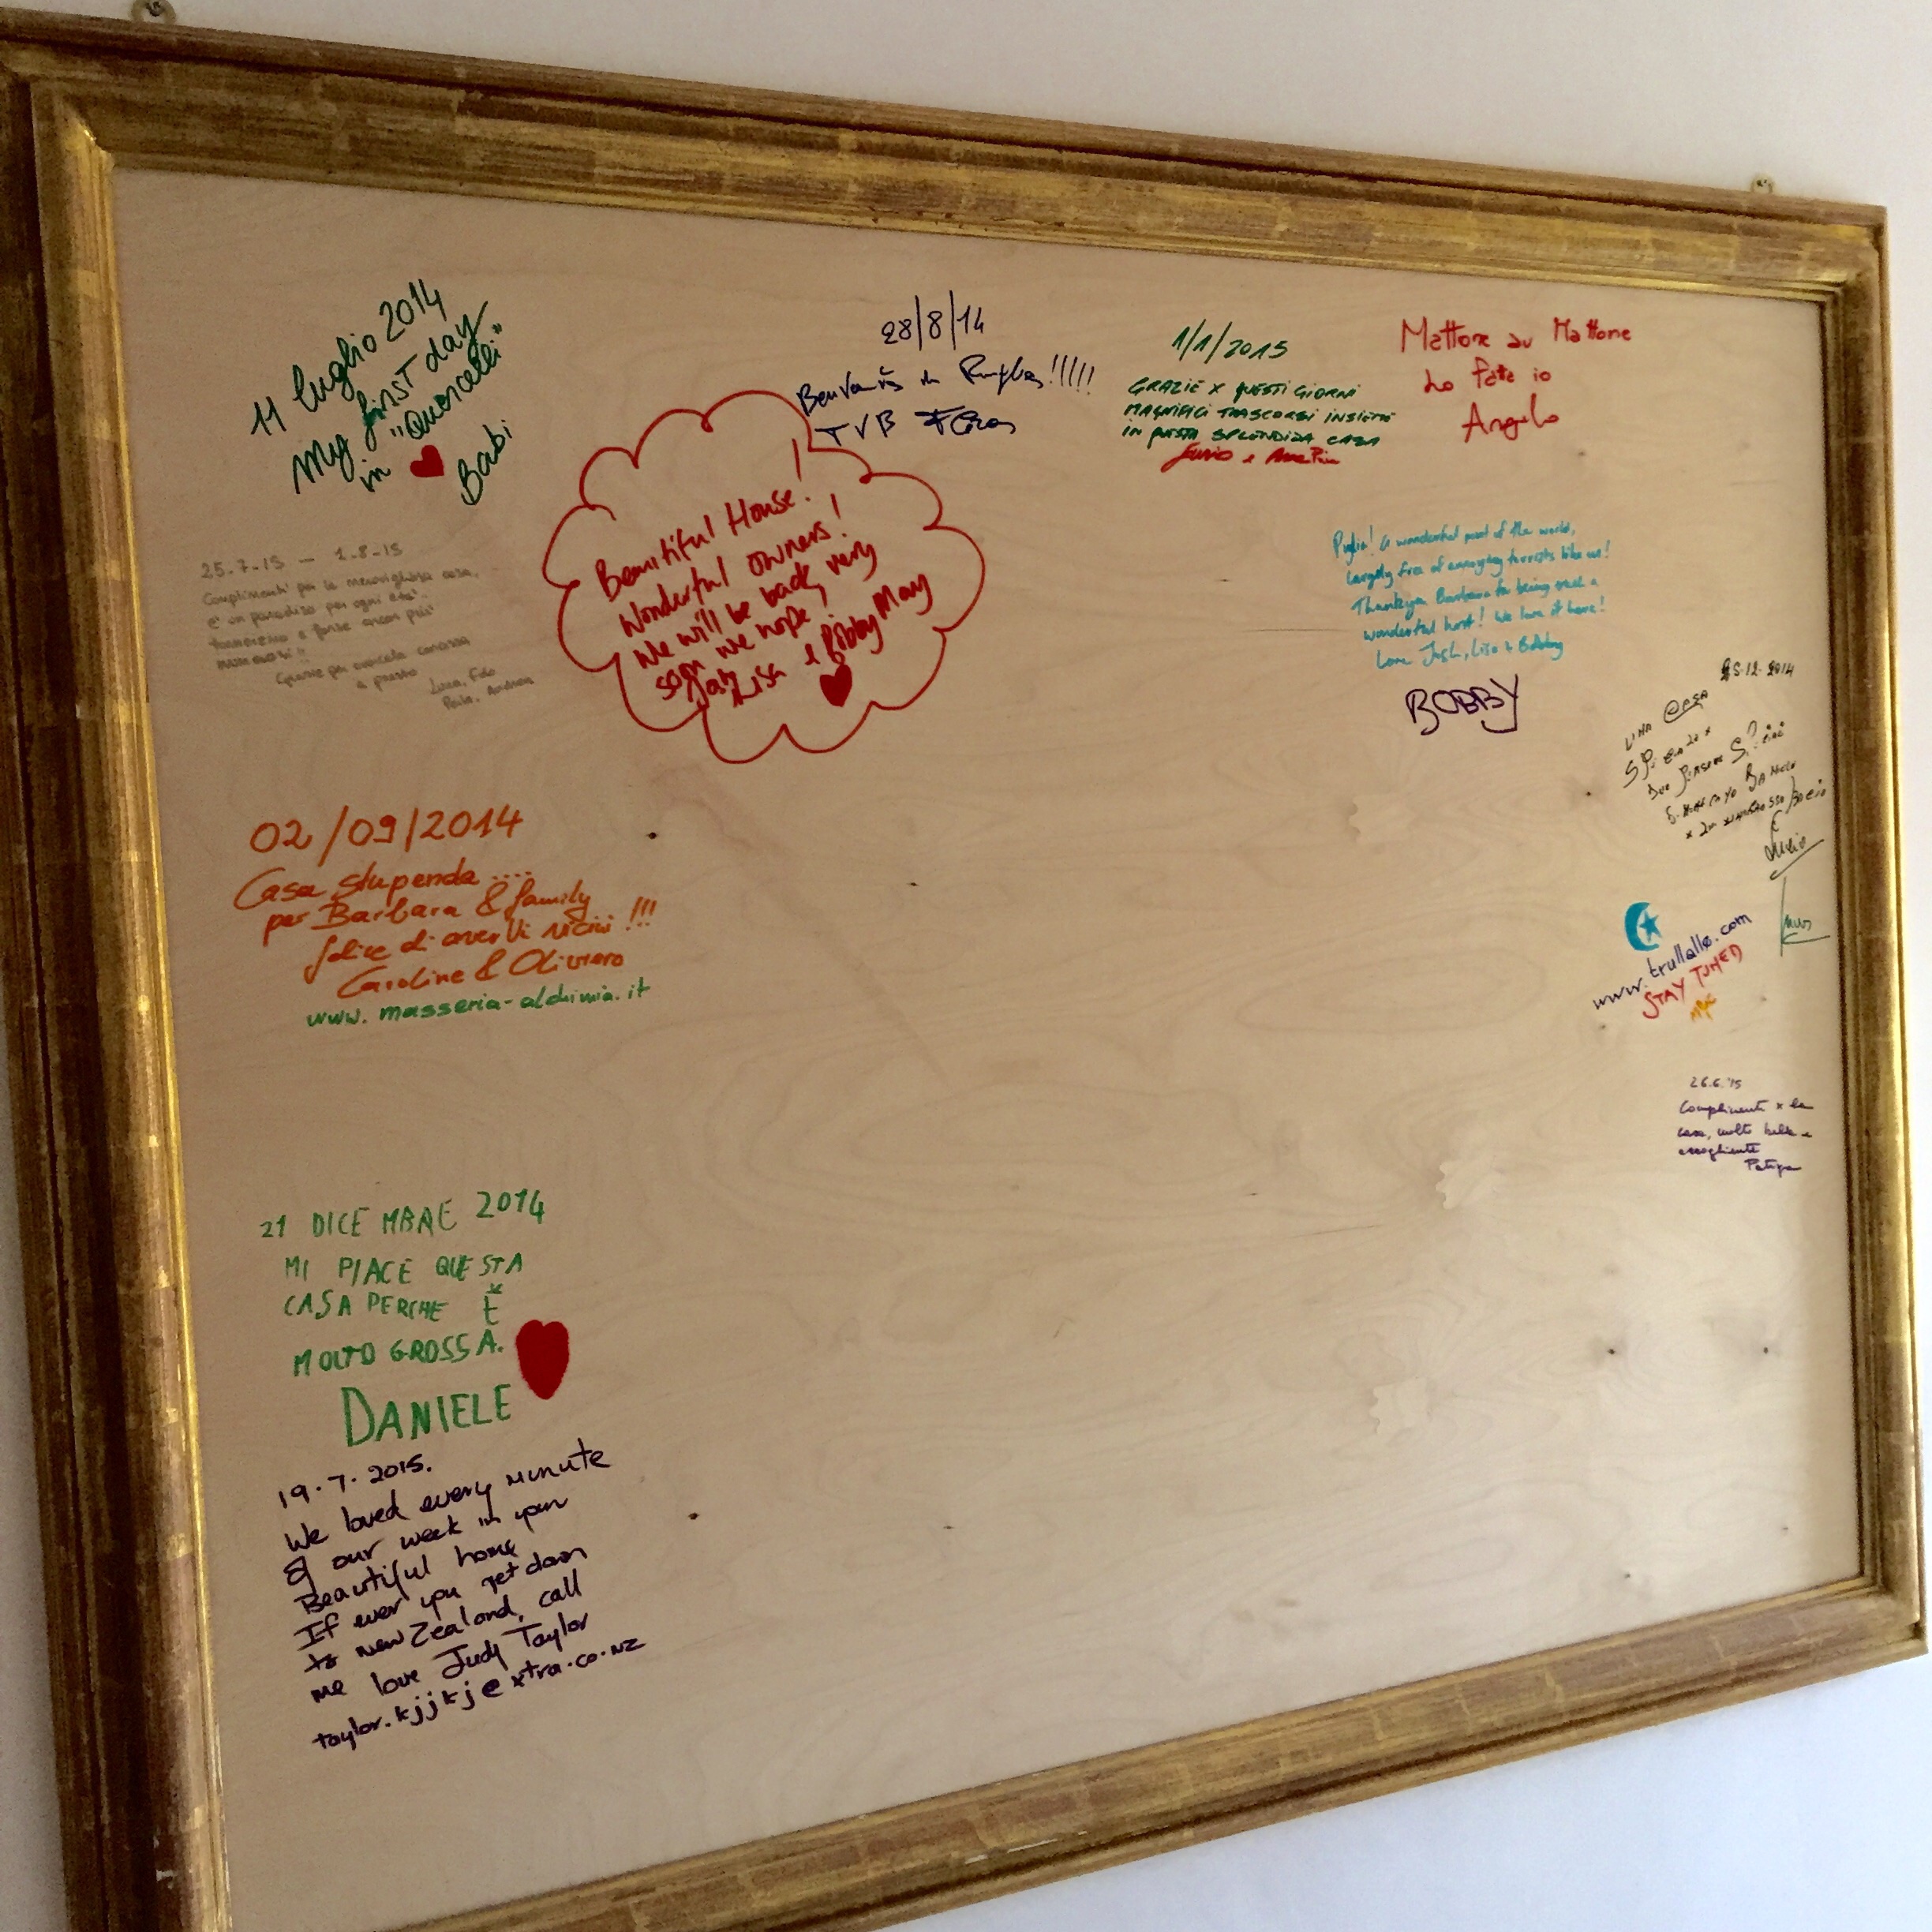 11 luglio 2014
My first day
in "Quercelli"
Babi
28/8/14
in Puglia!!!!!
TVB
1/1/2015
GRAZIE X QUESTI GIORNI
MAGNIFICI TRASCORSI INSIEME
IN QUESTA SPLENDIDA CASA
e
Mattone su Mattone
Lo fatto io
Angelo
Beautiful House!
Wonderful owners!
We will be back very
soon we hope!
Lisa & Bobby May
Puglia! A wonderful part of the world,
largely free of annoying tourists like us!
Thankyou Barbara for being such a
wonderful host! We love it here!
Love Josh, Lisa + Bobby
BOBBY
25.7.15 – 1.8.15
Complimenti per la meravigliosa casa.
E' un paradiso per ogni età.
Torneremo e forse ancor più
numerosi!!
Grazie per averla conosciuta
a presto
Luca, Fede
Paola, Andrea
25.12.2014
UNA CASA
02/09/2014
Casa stupenda ....
per Barbara & family
felice di averVi vicini !!!
Caroline & Oliviero
www.masseria-alchimia.it
www.trullallo.com
STAY TUNED
26.6.'15
Complimenti x la
casa, molto bella e
accogliente
21 DICEMBRE 2014
MI PIACE QUESTA
CASA PERCHE È
MOLTO GROSSA.
DANIELE
19.7.2015.
We loved every minute
of our week in your
Beautiful home
If ever you get down
to new Zealand, call
me love Judy Taylor
taylor.kjjkj@xtra.co.nz